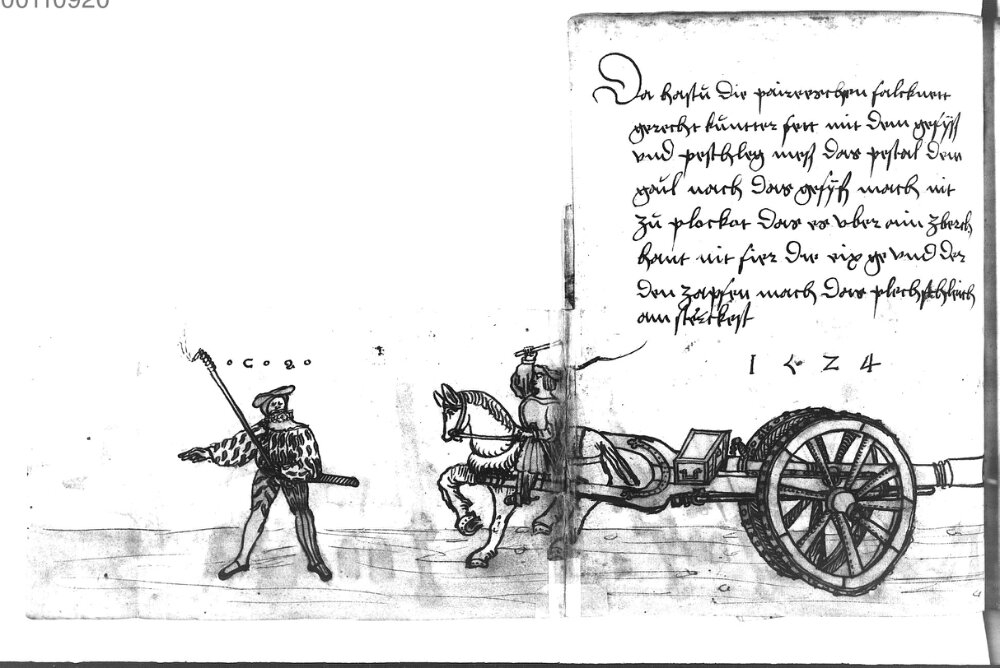 00110920
Da hastu die paireeschen falcknett
gerecht kuntter fett mit dem gefyß
vnd mess das pestal dem
gaul nach das gefyß mach nit
zu plockat das es vber ain zberch
haut nit fier die eix ge vnd der
den zapfen mach das
am sterckest
o C o 2 o
1524